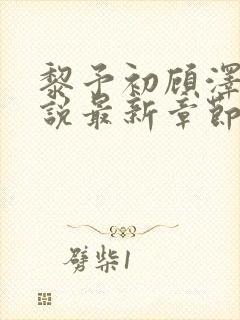 黎予初顾泽
說最新章節
劈柴1